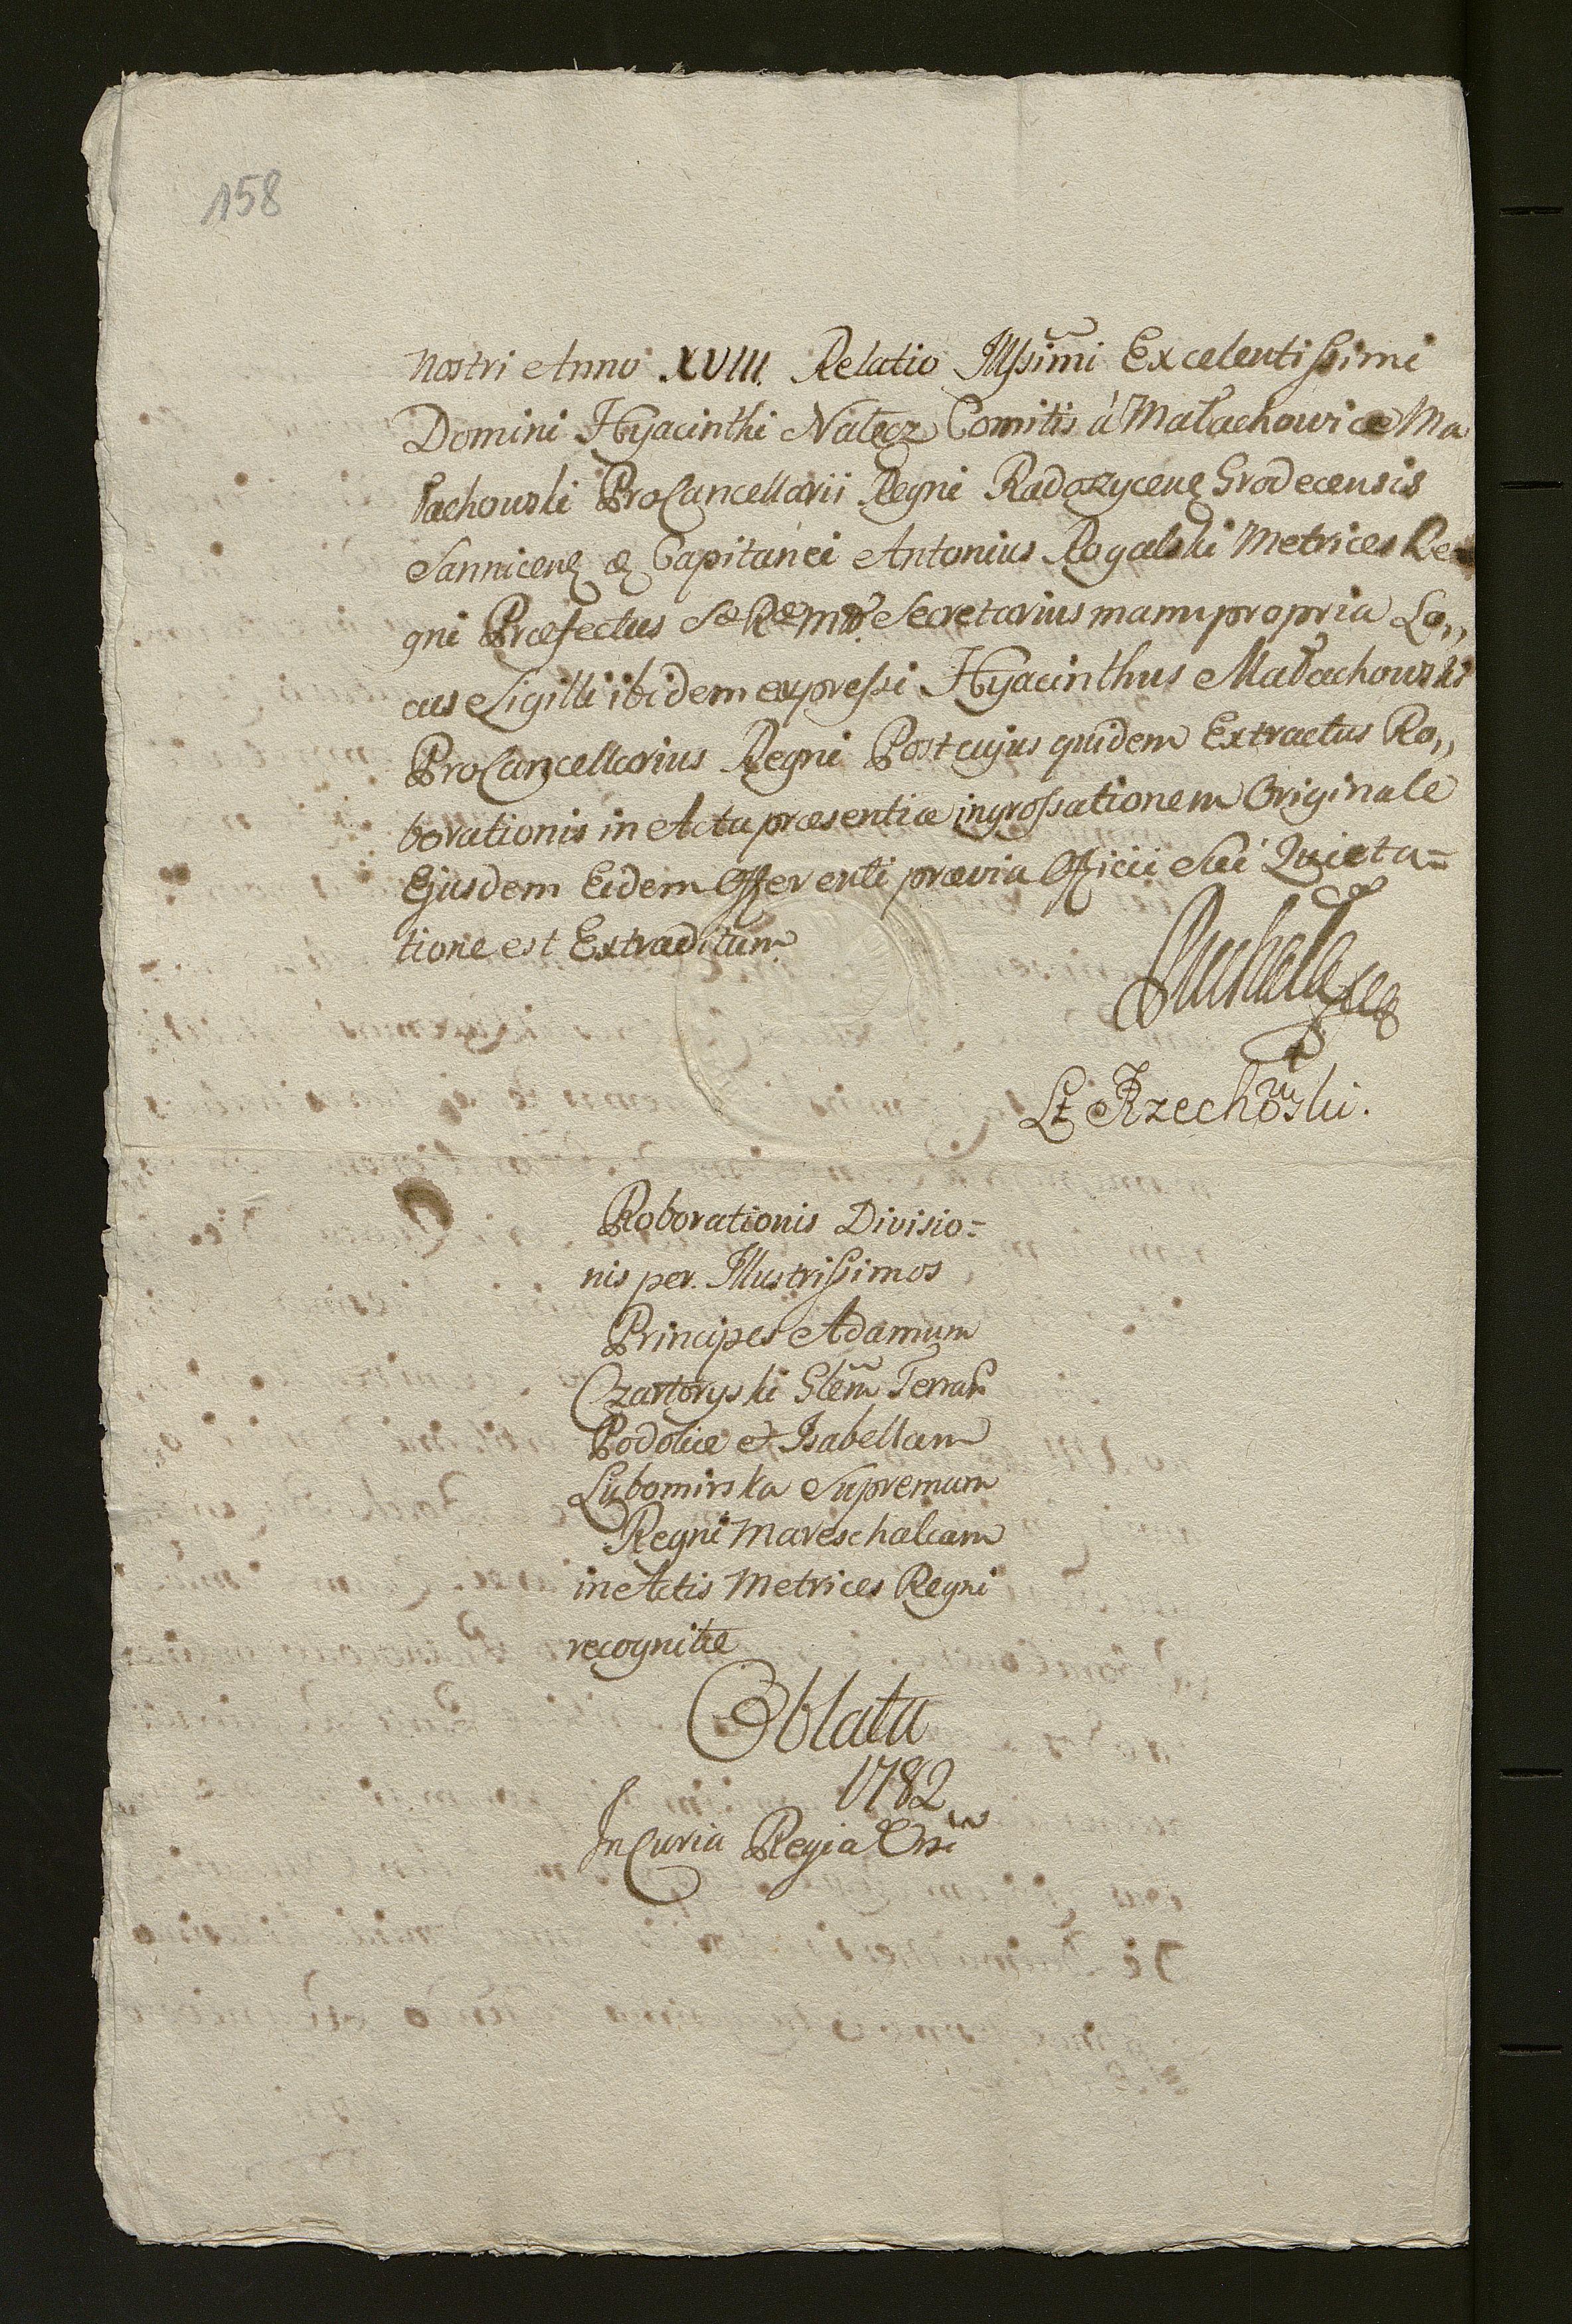 158
Nostri Anno XVIII. Relatio Illssimi Excelentissimi
Domini Hyacinthi Nałęcz Comitis à Małachowice Ma
łachowski ProCancellarii Regni Radoszycenę Grodecensis
Sannicenę & Capitanei Antonius Rogalski Metrices Re=
gni Præfectus Sæ Ræ Mtis Secretarius manu propria Lo,,
cus Sigilli ibidem expressi Hyacinthus Małachowski
ProCancellarius Regni Post cujus quidem Extractus Ro,,
borationis in Acta præsentia ingrossationem Originale
Ejusdem Eidem Offerenti prævia Officii Sui Quieta=
tione est Extraditum
Lt Rzechowski.
Roborationis Divisio=
nis per Illustrissimos
Principes Adamum
Czartoryski Glem Terrar
Podoliæ et Isabellam
Lubomirska Supremam
Regni Mareschalcam
in Actis Metrices Regni
recognitæ
Oblata
1782
In Curia Regia